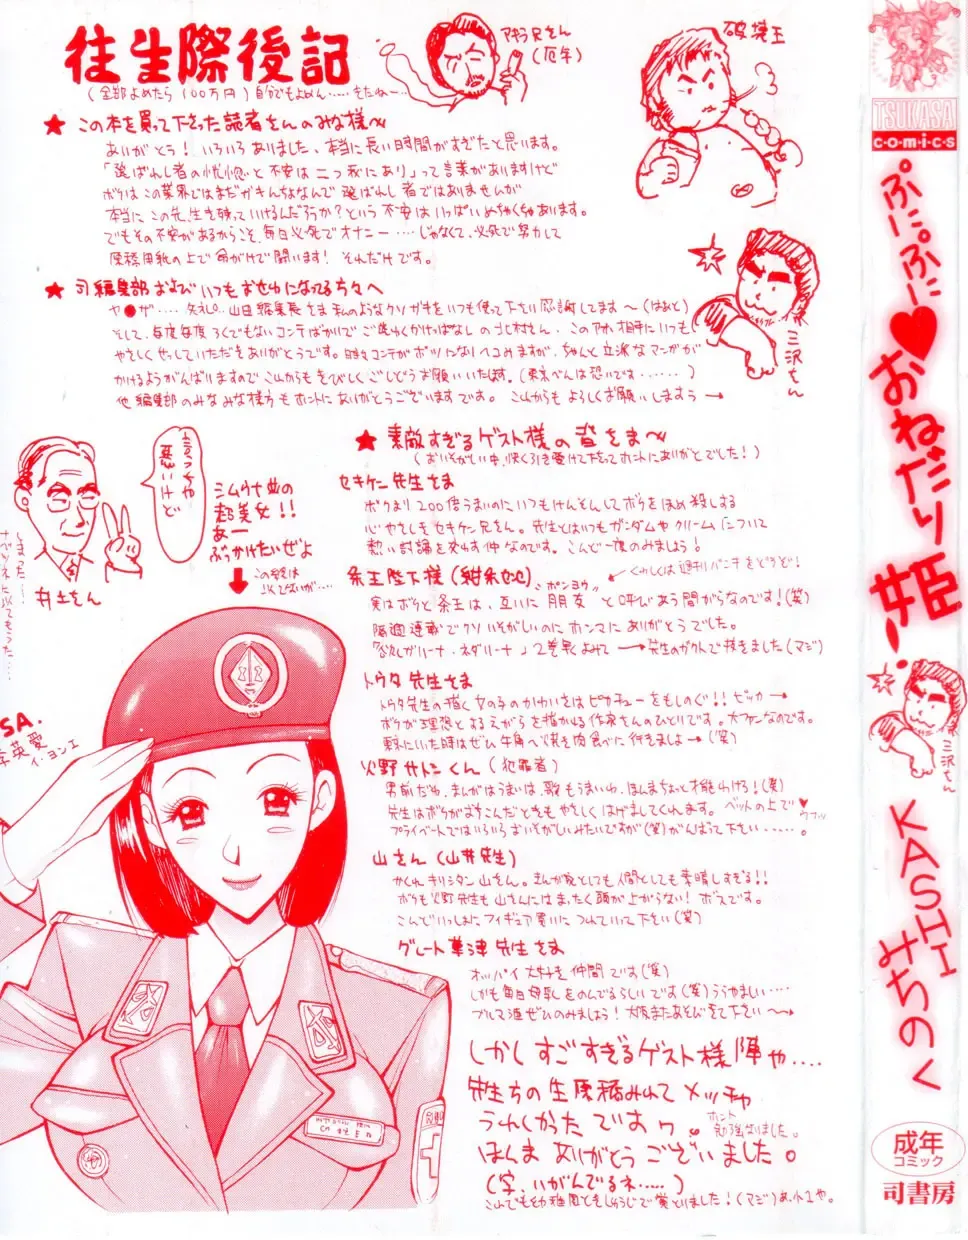 往生際後記
(全部よめたら100万円)自分でもよめん……きたねー…
アキラ兄さん
(厄年)
破壊王
★この本を買って下さった読者さんのみな様へ
ありがとう!いろいろありました、本当に長い時間がすぎたと思います。
「選ばれし者の恍惚と不安は二つ我にあり」って言葉がありますけど
ボクはこの業界ではまだガキんちょなんで選ばれし者ではありませんが
本当にこの先、生き残っていけるんだろうか?という不安はいっぱいめちゃくちゃあります。
でもその不安があるからこそ、毎日必死でオナニー……じゃなくて、必死で努力して
原稿用紙の上で命がけで闘います!それだけです。
★司編集部およびいつもお世わになってる方々へ
ヤ●ザ……失礼。山田編集長さま私のようなクソガキをいつも使って下さい感謝してます〜(はぁと)
そして、毎度毎度ろくでもないコンテばかりでご迷わくかけっぱなしの
やさしくせっしていただきありがとうです。時々コンテがボツになりヘコみますが、ちゃんと立派なマンガが
かけるようがんばりますのでこれからもきびしくごしどうお願いいたします。(東京べんは恐いです……)
他編集部のみなみな様方もホントにありがとうございますです。これからもよろしくお願いしますぅ→
三沢さん
★素敵すぎるゲスト様の皆さま〜
(おいそがしい中、快く引き受けて下さってホントにありがとでした!)
セキケン先生さま
ボクより200倍うまいのにいつもけんそんしてボクをほめ殺しする
心やさしきセキケン兄さん。先生とはいつもガンダムやクリームについて
熱い討論を交わす仲なのです。こんど一度のみましょう!
条王陛下様(紺条夜地)
くわしくは週刊パンチをどうぞ!
ポンヨウ
実はボクと条王は、互いに朋友と呼びあう間がらなのです!(笑)
隔週連載でクソいそがしいのにホンマにありがとうでした。
2巻早くよみて→先生のガクトで抜きました(マジ)
トウタ先生さま
トウタ先生の描く女の子のかわいさはピカチューをもしのぐ!!ピッカー→
ボクが理想とするえがらを描かれる作家さんのひとりです。大ファンなのです。
東京にいた時はぜひ牛角へ焼き肉食べに行きましょ→(笑)
火野サトシくん(犯罪者)
男前だわ、まんがはうまいは、歌もうまいわ、ほんまちょっと才能わけろ!(笑)
先生はボクがおちこんだときもやさしくはげましてくれます。ベットの上で♥
ウフッ
プライベートではいろいろおいそがしいみたいですが(笑)がんばって下さい……。
山さん(山井先生)
かくれキリシタン山さん。まんが家としても人間としても素晴しすぎる!!
ボクも火野先生も山さんにはまったく頭が上がらない!ボスです。
こんどいっしょにフィギュア買いにつれていって下さい(笑)
グレート草津先生さま
オッパイ大好き仲間です(笑)
しかも毎日母乳をのんでるらしいです(笑)うらやましい……
ブルマ酒ぜひのみましょう!大阪またあそびきて下さい〜→
しかしすごすぎるゲスト様陣や….
先生ちの生原稿みれてメッチャ
うれしかったですゥ。
ホント
勉強なりました。
ほんまありがとうございました。
(字、いがんでるネ……)
これでも幼稚園ときしゅうじで賞とりました!(マジ)あ、小1や。
言っちゃ
悪いけど
井土さん
シムウナ並の
超美女!!
あー
ぶっかけたいぜよ
この絵は
SA.
李英愛
イ・ヨンエ
TSUKASA
comics
ぷにぷに♥おねだり姫!
三沢さん
KASHIみちのく
成年
コミック
司書房